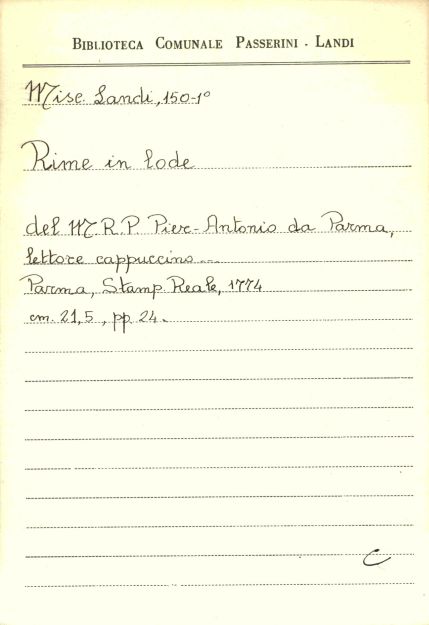 BIBLIOTECA COMUNALE PASSERINI - LANDI
Misc. Landi, 150-1°
Rime in lode
del M.R.P. Pier-Antonio da Parma,
lettore cappuccino...
Parma, Stamp. Reale, 1774
cm. 21,5, pp. 24.
C